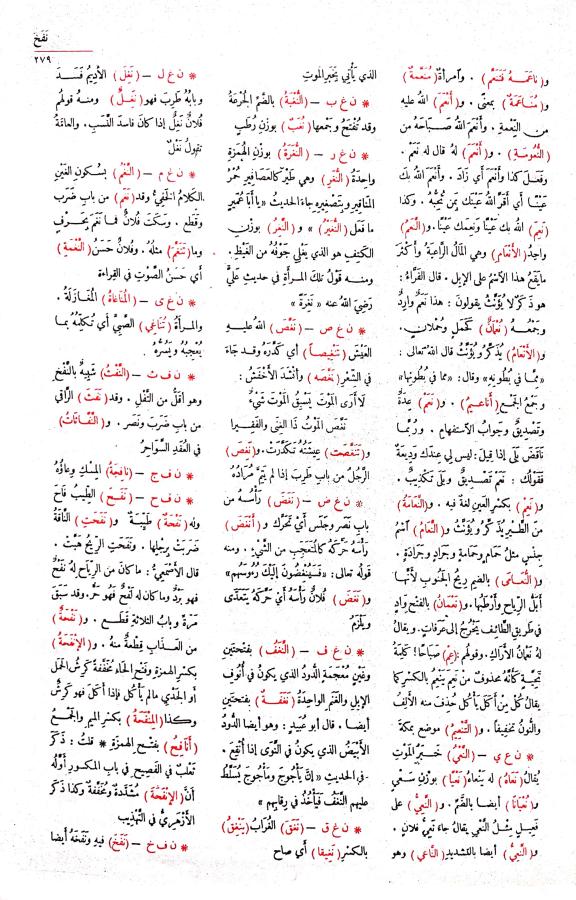 نَفَخَ
٢٧٩
و(نَاعَمَهُ فَتَنَعَّمَ) . وامرأةٌ (مُنَعَّمَةٌ)
و(مُنَاعَمَةٌ) بمعنًى . و(أَنْعَمَ) اللهُ عليه
من النِّعْمةِ . وأَنْعَمَ اللهُ صَبَاحَهُ من
(النُّعُومَةِ) . و(أَنْعَمَ) لَهُ قال له نَعَمْ .
وفَعَلَ كذا وأَنْعَمَ أي زادَ . وأَنْعَمَ اللهُ بك
عَيْنًا أي أَقَرَّ اللهُ عَيْنَكَ بمن تُحِبُّهُ . وكذا
(نَعِمَ) اللهُ بك عَيْنًا ونَعِمَكَ عَيْنًا . و(النَّعَمُ)
واحِدُ (الأَنْعَامِ) وهي المَالُ الرَّاعِيَةُ وأَكْثَرُ
مايَقَعُ هذا الاسْمُ على الإِبِلِ . قال الفَرَّاءُ :
هو ذَكَرٌ لا يُؤَنَّثُ يقولونَ : هذا نَعَمٌ وَارِدٌ
وجَمْعُهُ (نُعْمَانٌ) كحَمَلٍ وحُمْلانٍ .
و(الأَنْعَامُ) يُذَكَّرُ ويُؤَنَّثُ قال اللهُ تعالى :
«مِمَّا في بُطُونِهِ» وقال : «مما في بُطُونِها»
وجمعُ الجمْعِ (أَنَاعِيمُ) . و(نَعَمْ) عِدَةٌ
وتَصْدِيقٌ وجَوابُ الاستفهامِ . ورُبَّما
نَاقَضَ بَلَى إذا قيلَ: ليس لي عِنْدَك وَدِيعَةٌ
فقَوْلُكَ : نَعَمْ تَصْدِيقٌ وبَلَى تَكْذِيبٌ .
و(نَعِمْ) بكسْرِ العينِ لغةٌ فيه . و(النَّعَامَةُ)
منَ الطَّيْرِ يُذَكَّرُ ويُؤَنَّثُ و(النَّعَامُ) اسْمُ
جِنْسٍ مثلُ حَمَامٍ وحَمَامةٍ وجَرادٍ وجَرَادَةٍ .
و(النُّعَامَى) بالضمِ رِيحُ الجَنُوبِ لأَنَّها
أَبَلُّ الرِّيَاحِ وأَرْطَبُها. و(نَعْمَانُ) بالفتحِ وادٍ
في طَرِيقِ الطَّائِفِ يَخْرُجُ إلى عَرَفَاتٍ . ويقالُ
له نَعْمَانُ الأَراكِ . وقولهم : (عِمْ) صَبَاحًا ! كلمةُ
تَحِيَّةٍ كأَنَّهُ محذوفٌ من نَعِمَ يَنْعِمُ بالكسْرِكما
يقالُ كُلْ مِنْ أَكَلَ يَأْكُل حُذِفَ منه الأَلِفُ
والنُّونُ تَخْفِيفًا . و(التَّنْعِيمُ) موضع بمكةَ
* ن ع ي – (النَّعْيُ) خَبَرُالمَوْتِ
يُقالُ (نَعَاهُ) له يَنْعاهُ (نَعْيًا) بوزْنِ سَعْيٍ
و(نُعْيَانًا) أيضا بالضَّمِّ . و(النَّعِيُّ) على
فَعِيلٍ مِثْلُ النَّعْيِ يقالُ جاءَ نَعِيُّ فلانٍ .
و(النَّعِيُّ) أيضا بالتشديدِ (النَّاعي) وهو
الذي يَأْتِي بخَبَرِالموتِ
* ن غ ب – (النُّغْبَةُ) بالضَّمِّ الجُرْعَةُ
وقد تُفْتَحُ وجمعُها (نُغَبٌ) بوزنِ رُطَبٍ
* ن غ ر – (النُّغَرَةُ) بوزْنِ الهُمَزةِ
واحِدَةُ (النُّغَرِ) وهي طَيْرٌ كالعَصَافِيرِ حُمْرُ
المَنَاقِيرِ وبتَصْغِيرِهِ جاءَ الحديثُ «يا أَبَا عُمَيْرٍ
ما فَعَلَ (النُّغَيْرُ) » و (النَّغِرُ) بوزْنِ
الكَتِفِ هو الذي يَغْلِي جَوْفُهُ من الغَيْظِ .
ومنه قولُ تلكَ المرأةِ في حديثِ عليٍّ
رَضِيَ اللهُ عنه « نَغِرَةٌ »
* ن غ ص – (نَغَّصَ) اللهُ عليهِ
العَيْشَ (تَنْغِيصًا) أي كَدَّرَهُ وقد جَاءَ
في الشِّعْرِ (نَغَّصَه) وأنْشَدَ الأَخْفَشُ :
لا أَرَى المَوْتَ يَسْبِقُ المَوْتَ شَيءٌ
نَغَّصَ المَوْتُ ذَا الغِنَى والفَقِيرا
و(تَنَغَّصَت) عِيشَتُهُ تَكَدَّرَتْ. و(نَغِصَ)
الرَّجُلُ من بابِ طَرِبَ إذا لم يَتِمَّ مُرَادُهُ
* ن غ ض – (نَغَضَ) رَأْسُهُ من
بابِ نَصَر وجَلَس أي تَحَرَّك و (أَنْغَضَ)
رأْسَهُ حَرَّكَهُ كالمُتَعَجِّبِ من الشَّيْءِ . ومنه
قولُه تعالى : «فَسَيُنْغِضُونَ إِلَيْكَ رُءُوسَهُم»
و(نَغَضَ) فُلانٌ رَأْسَهُ أي حَرَّكَهُ يَتَعَدَّى
ويَلْزَمُ
* ن غ ف – (النَّغَفُ) بفتحتينِ
وغَيْنٍ مُعْجَمَةٍ الدُّودُ الذي يكونُ في أُنُوفِ
الإِبِلِ والغَنَمِ الواحِدَةُ (نَغَفَةٌ) بفتحتينِ
أيضا . قال أبو عُبَيْدٍ : وهو أيضا الدُّودُ
الأَبْيَضُ الذي يكونُ في النَّوَى إذا أُنْقِعَ .
في الحديثِ «إِنَّ يَأْجُوجَ ومَأْجُوجَ يُسَلَّطُ
عليهم النَّغَفُ فيَأْخُذُ في رِقابِهِم»
* ن غ ق – (نَغَقَ) الغُرَابُ (يَنْغِقُ)
بالكسْرِ (نَغِيقًا) أي صاح
* ن غ ل – (نَغِلَ) الأَدِيمُ فَسَدَ
وبابُهُ طَرِبَ فهو (نَغِلٌ) ومنه قولُهم
فُلانٌ نَغِلٌ إذا كانَ فاسِدَ النَّسَبِ. والعامَّةُ
تَقُولُ نَغْلٌ
* ن غ م – (النَّغْمُ) بسُكونِ الغَيْنِ
الكلامُ الخَفِيُّ وقد (نَغَمَ) من بابِ ضَرَبَ
وقَطَع . وسَكَتَ فُلانٌ فما نَغَمَ بحَرْفٍ
وما (تَنَغَّمَ) مثلُهُ . وفُلانٌ حَسَنُ (النَّغْمَةِ)
أي حَسَنُ الصَّوْتِ في القِراءَةِ
* ن غ ى – (المُنَاغَاةُ) المُغَازَلَةُ .
والمرأَةُ (تُنَاغِي) الصَّبِيَّ أي تُكَلِّمُهُ بما
يُعْجِبُهُ ويَسُرُّهُ
* ن ف ث – (النَّفْثُ) شَبِيهٌ بالنَّفْخِ
وهو أَقَلُّ من التَّفْلِ . وقد (نَفَثَ) الرَّاقي
من بابِ ضَرَبَ ونَصَر . و(النَّفَّاثَاتُ)
في العُقَدِ السَّوَاحِرُ
* ن ف ج – (نَافِجَةُ) المِسْكِ وِعَاؤُهُ
* ن ف ح – (نَفَحَ) الطِّيبُ فَاحَ
وله (نَفْحَةٌ) طَيِّبَةٌ و(نَفَحَتِ) النَّاقَةُ
ضَرَبَتْ بِرِجْلِها . ونَفَحَتِ الرِّيحُ هَبَّتْ .
قال الأَصْمَعِيُّ : ما كانَ من الرِّياحِ لَهُ نَفْحٌ
فهو بَرْدٌ وما كان له لَفْحٌ فهو حَرٌّ. وقد سَبَقَ
مَرَّةً وبابُ الثلاثةِ قَطَع . و(نَفْحَةٌ)
من العَذَابِ قِطْعَةٌ منهُ . و(الإِنْفَحَةُ)
بكسْرِ الهمزةِ وفَتْحِ الحَاءِ مُخَفَّفَةً كَرِشُ الحَمَلِ
أو الجَدْيِ مالم يَأْكُلْ فإذا أَكَلَ فهو كَرِشٌ
وكذا (المِنْفَحَةُ) بكسْرِ الميمِ والجَمْعُ
(أَنَافِحُ) بفتْحِ الهمْزةِ * قلتُ : ذَكَرَ
ثَعْلَبٌ في الفَصِيحِ في بابِ المكسورِ أَوَّلُهُ
أنَّ (الإِنْفَحَةَ) مُشَدَّدَةٌ ومُخَفَّفَةٌ وكذا ذَكَرَ
الأَزْهَرِيُّ في التَّهْذِيبِ
* ن ف خ – (نَفَخَ) فيه ونَفَخَهُ أيضا